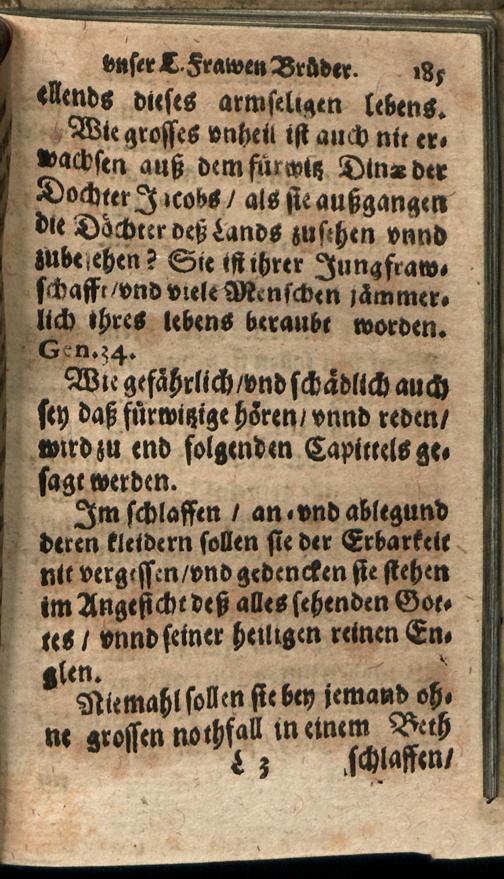 vnser L. Frawen Brüder. 185
ellends dieses armseligen lebens.
Wie grosses vnheil ist auch nit er-
wachsen auß dem fürwitz Dinæ der
Dochter Jacobs / als sie außgangen
die Döchter deß Lands zusehen vnnd
zubesehen? Sie ist ihrer Jungfraw-
schafft/vnd viele Menschen jämmer-
lich ihres lebens beraubt worden.
Gen.34.
Wie gefährlich/vnd schädlich auch
sey daß fürwitzige hören/ vnnd reden/
wird zu end folgenden Capittels ge-
sagt werden.
Im schlaffen / an-vnd ablegund
deren kleidern sollen sie der Erbarkeit
nit vergessen/vnd gedencken sie stehen
im Angesicht deß alles sehenden Got-
tes / vnnd seiner heiligen reinen En-
glen.
Niemahl sollen sie bey jemand oh-
ne grossen nothfall in einem Beth
L 3 schlaffen/